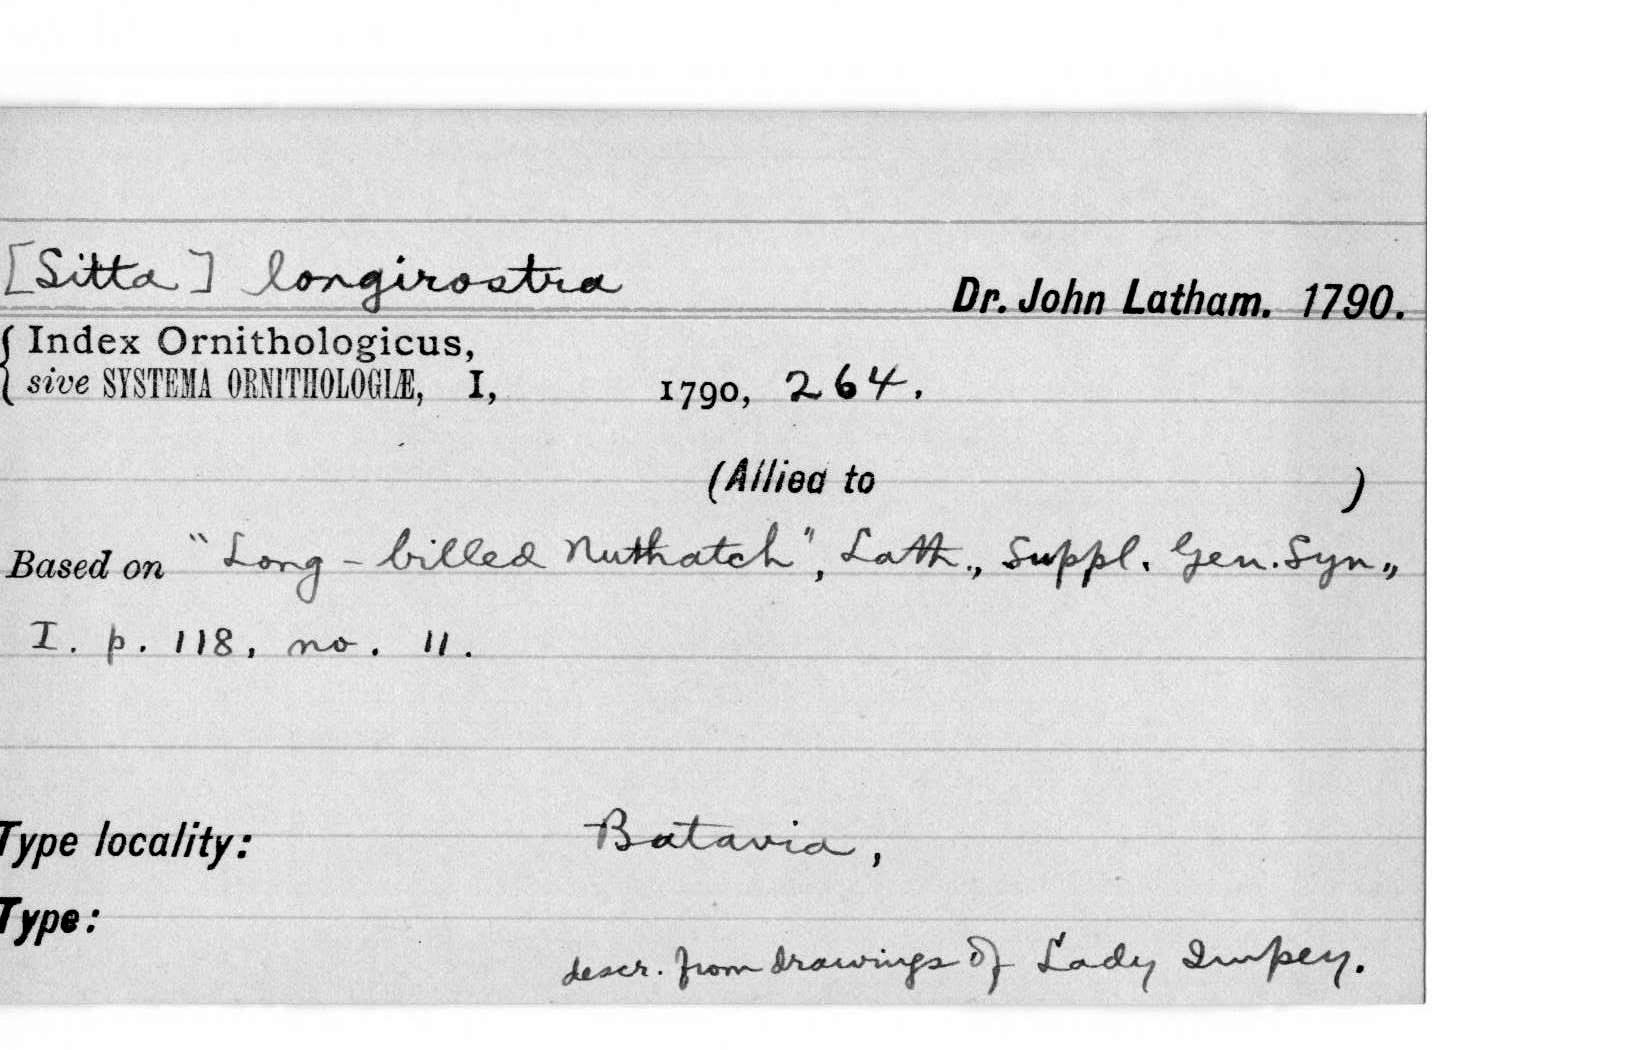 [Sitta] longirostra
Dr. John Latham. 1790.
Index Ornithologicus,
sive SYSTEMA ORNITHOLOGIÆ, I, 1790, 264.
(Allied to )
Based on "Long-billed Nuthatch", Lath., Suppl. Gen. Syn.,
I. p. 118, no. 11.
Type locality: Batavia,
Type:
descr. from drawings of Lady Impey.